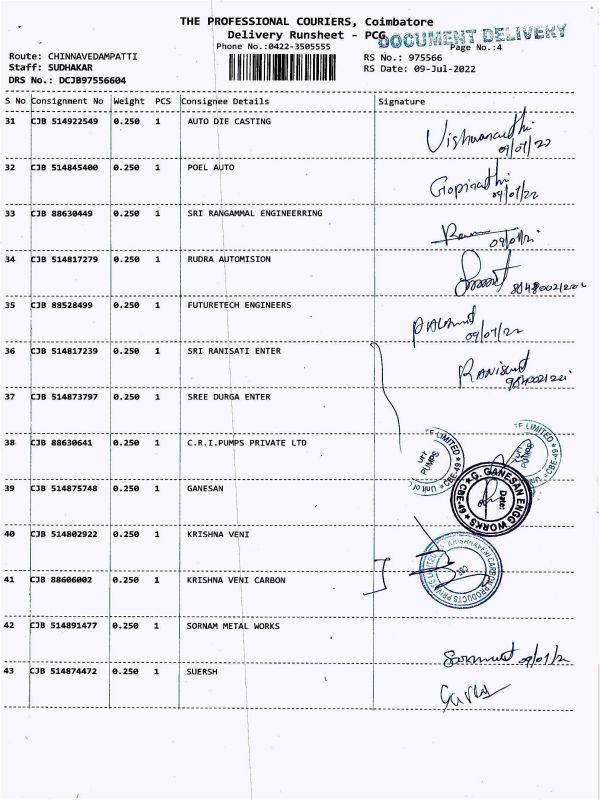 THE PROFESSIONAL COURIERS, Coimbatore
Delivery Runsheet - PCG
DOCUMENT DELIVERY
Phone No.:0422-3505555
Page No.:4
Route: CHINNAVEDAMPATTI
RS No.: 975566
Staff: SUDHAKAR
RS Date: 09-Jul-2022
DRS No.: DCJB97556604
S No Consignment No Weight PCS Consignee Details Signature
31 CJB 514922549 0.250 1 AUTO DIE CASTING
09/07/22
32 CJB 514845400 0.250 1 POEL AUTO Gopinathi
09/07/22
33 CJB 88630449 0.250 1 SRI RANGAMMAL ENGINEERRING
34 CJB 514817279 0.250 1 RUDRA AUTOMISION
35 CJB 88528499 0.250 1 FUTURETECH ENGINEERS
09/07/22
36 CJB 514817239 0.250 1 SRI RANISATI ENTER
37 CJB 514873797 0.250 1 SREE DURGA ENTER
38 CJB 88630641 0.250 1 C.R.I.PUMPS PRIVATE LTD
39 CJB 514875748 0.250 1 GANESAN
G. GANESAN ENGG WORKS
CBE-49
Date:
40 CJB 514802922 0.250 1 KRISHNA VENI
41 CJB 88606002 0.250 1 KRISHNA VENI CARBON
KRISHNAVENI CARBON PRODUCTS PRIVATE LIMITED
42 CJB 514891477 0.250 1 SORNAM METAL WORKS
43 CJB 514874472 0.250 1 SUERSH